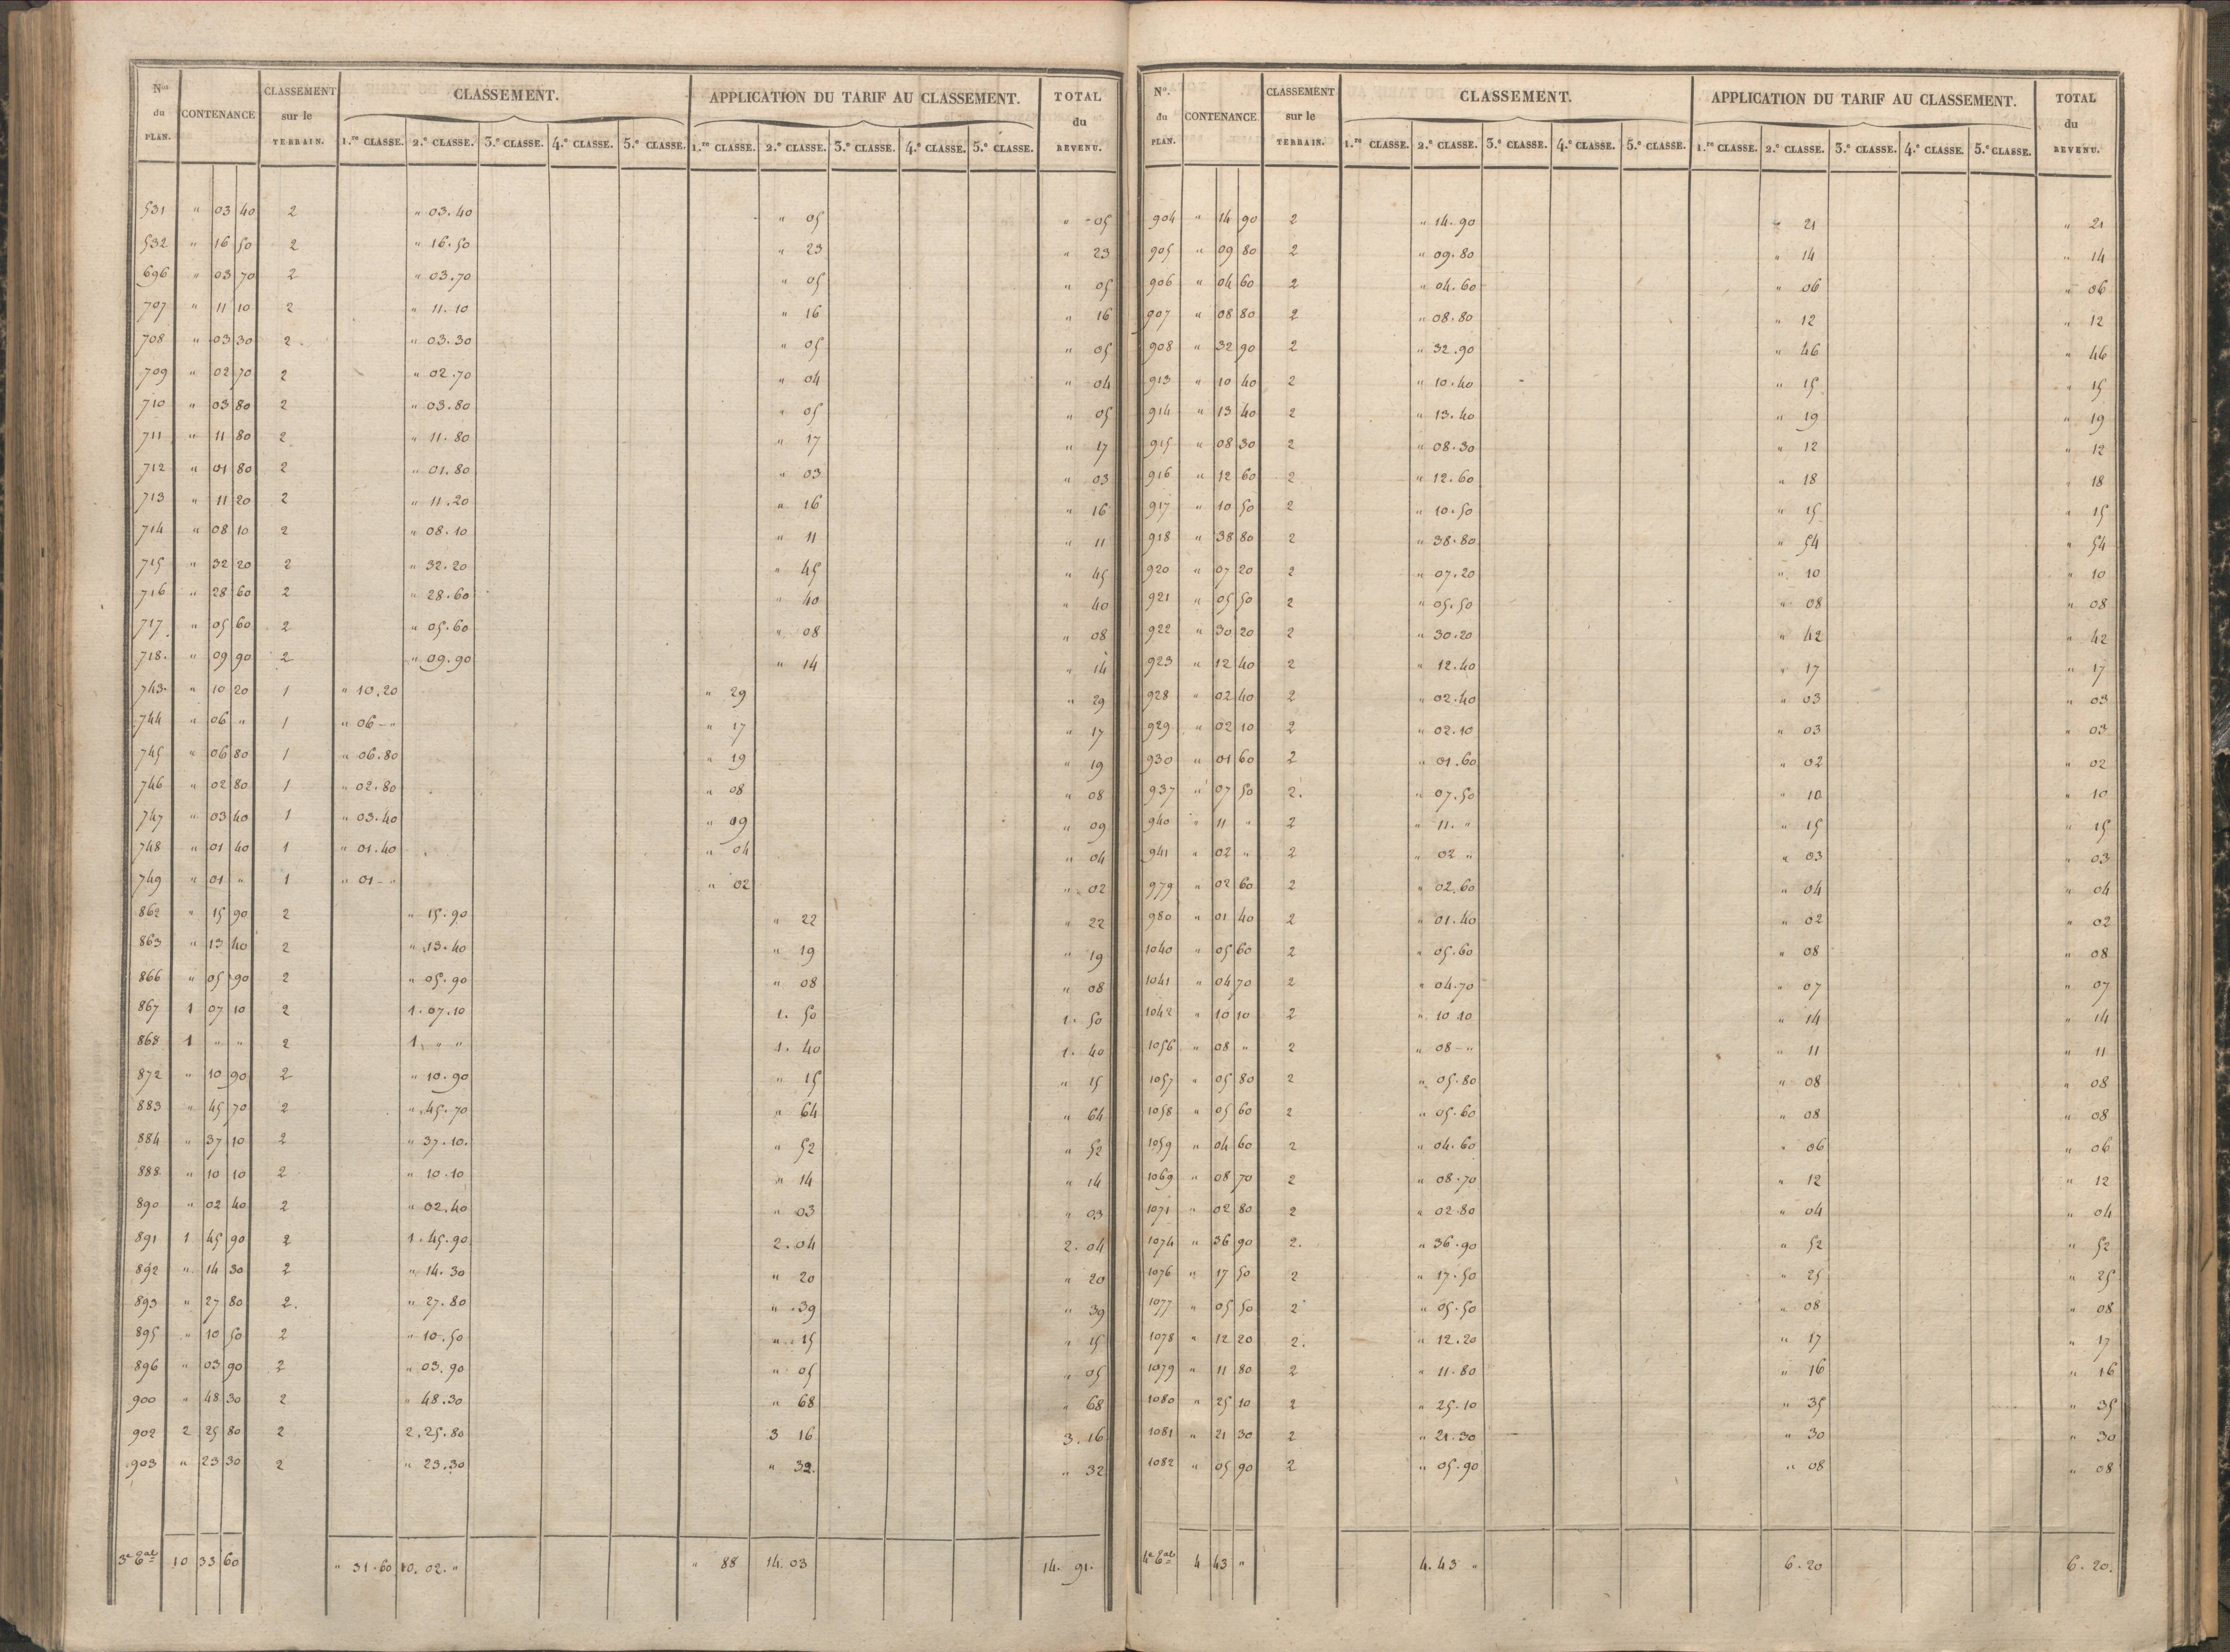 Nos du PLAN. CONTENANCE CLASSEMENT sur le TERRAIN. CLASSEMENT. APPLICATION DU TARIF AU CLASSEMENT. TOTAL du REVENU.
1.re CLASSE. 2.e CLASSE. 3.e CLASSE. 4.e CLASSE. 5.e CLASSE. 1.re CLASSE. 2.e CLASSE. 3.e CLASSE. 4.e CLASSE. 5.e CLASSE.
531 " 03 40 2 " 03.40 " 05 " 05
532 " 16 50 2 " 16.50 " 23 " 23
696 " 03 70 2 " 03.70 " 05 " 05
707 " 11 10 2 " 11.10 " 16 " 16
708 " 03 30 2 " 03.30 " 05 " 05
709 " 02 70 2 " 02.70 " 04 " 04
710 " 03 80 2 " 03.80 " 05 " 05
711 " 11 80 2 " 11.80 " 17 " 17
712 " 01 80 2 " 01.80 " 03 " 03
713 " 11 20 2 " 11.20 " 16 " 16
714 " 08 10 2 " 08.10 " 11 " 11
715 " 32 20 2 " 32.20 " 45 " 45
716 " 28 60 2 " 28.60 " 40 " 40
717 " 05 60 2 " 05.60 " 08 " 08
718. " 09 90 2 " 09.90 " 14 " 14
743. " 10 20 1 " 10.20 " 29 " 29
744 " 06 " 1 " 06 - " " 17 " 17
745 " 06 80 1 " 06.80 " 19 " 19
746 " 02 80 1 " 02.80 " 08 " 08
747 " 03 40 1 " 03.40 " 09 " 09
748 " 01 40 1 " 01.40 " 04 " 04
749 " 01 " 1 " 01 - " " 02 " 02
862 " 15 90 2 " 15.90 " 22 " 22
863 " 13 40 2 " 13.40 " 19 " 19
866 " 05 90 2 " 05.90 " 08 " 08
867 1 07 10 2 1.07.10 1. 50 1. 50
868 1 " " 2 1. " " 1. 40 1. 40
872 " 10 90 2 " 10.90 " 15 " 15
883 " 45 70 2 " 45.70 " 64 " 64
884 " 37 10 2 " 37.10. " 52 " 52
888 " 10 10 2 " 10.10 " 14 " 14
890 " 02 40 2 " 02.40 " 03 " 03
891 1 45 90 2 1.45.90 2.04 2.04
892 " 14 30 2 " 14.30 " 20 " 20
893 " 27 80 2. " 27.80 " 39 " 39
895 " 10 50 2 " 10.50 " 15 " 15
896 " 03 90 2 " 03.90 " 05 " 05
900 " 48 30 2 " 48.30 " 68 " 68
902 2 25 80 2 2.25.80 3 16 3.16
903 " 23 30 2 " 23.30 " 32. " 32
3e Tal 10 33 60 " 31.60 10.02. " " 88 14.03 14. 91.
No. du PLAN. CONTENANCE. CLASSEMENT sur le TERRAIN. CLASSEMENT. APPLICATION DU TARIF AU CLASSEMENT. TOTAL du REVENU.
1.re CLASSE. 2.e CLASSE. 3.e CLASSE. 4.e CLASSE. 5.e CLASSE. 1.re CLASSE. 2.e CLASSE. 3.e CLASSE. 4.e CLASSE. 5.e CLASSE.
904 " 14 90 2 " 14.90 " 21 " 21
905 " 09 80 2 " 09.80 " 14 " 14
906 " 04 60 2 " 04.60 " 06 " 06
907 " 08 80 2 " 08.80 " 12 " 12
908 " 32 90 2 " 32.90 " 46 " 46
913 " 10 40 2 " 10.40 " 15 " 15
914 " 13 40 2 " 13.40 " 19 " 19
915 " 08 30 2 " 08.30 " 12 " 12
916 " 12 60 2 " 12.60 " 18 " 18
917 " 10 50 2 " 10.50 " 15 " 15
918 " 38 80 2 " 38.80 " 54 " 54
920 " 07 20 2 " 07.20 " 10 " 10
921 " 05 50 2 " 05.50 " 08 " 08
922 " 30 20 2 " 30.20 " 42 " 42
923 " 12 40 2 " 12.40 " 17 " 17
928 " 02 40 2 " 02.40 " 03 " 03
929 " 02 10 2 " 02.10 " 03 " 03
930 " 01 60 2 " 01.60 " 02 " 02
937 " 07 50 2. " 07.50 " 10 " 10
940 " 11 " 2 " 11. " " 15 " 15
941 " 02 " 2 " 02 " " 03 " 03
979 " 02 60 2 " 02.60 " 04 " 04
980 " 01 40 2 " 01.40 " 02 " 02
1040 " 05 60 2 " 05.60 " 08 " 08
1041 " 04 70 2 " 04.70 " 07 " 07
1042 " 10 10 2 " 10 10 " 14 " 14
1056 " 08 " 2 " 08 - " " 11 " 11
1057 " 05 80 2 " 05.80 " 08 " 08
1058 " 05 60 2 " 05.60 " 08 " 08
1059 " 04 60 2 " 04.60 " 06 " 06
1069 " 08 70 2 " 08.70 " 12 " 12
1071 " 02 80 2 " 02.80 " 04 " 04
1074 " 36 90 2. " 36.90 " 52 " 52
1076 " 17 50 2 " 17.50 " 25 " 25
1077 " 05 50 2 " 05.50 " 08 " 08
1078 " 12 20 2. " 12.20 " 17 " 17
1079 " 11 80 2 " 11.80 " 16 " 16
1080 " 25 10 2 " 25.10 " 35 " 35
1081 " 21 30 2 " 21.30 " 30 " 30
1082 " 05 90 2 " 05.90 " 08 " 08
4e Tal 4 43 " 4.43 " 6.20 6.20.